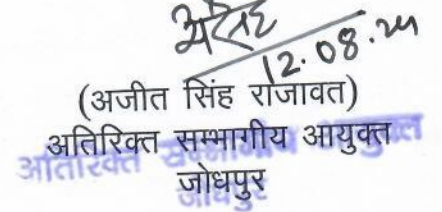 12.08.24
(अजीत सिंह राजावत)
अतिरिक्त सम्भागीय आयुक्त
जोधपुर
अतिरिक्त सम्भागीय आयुक्त
जोधपुर